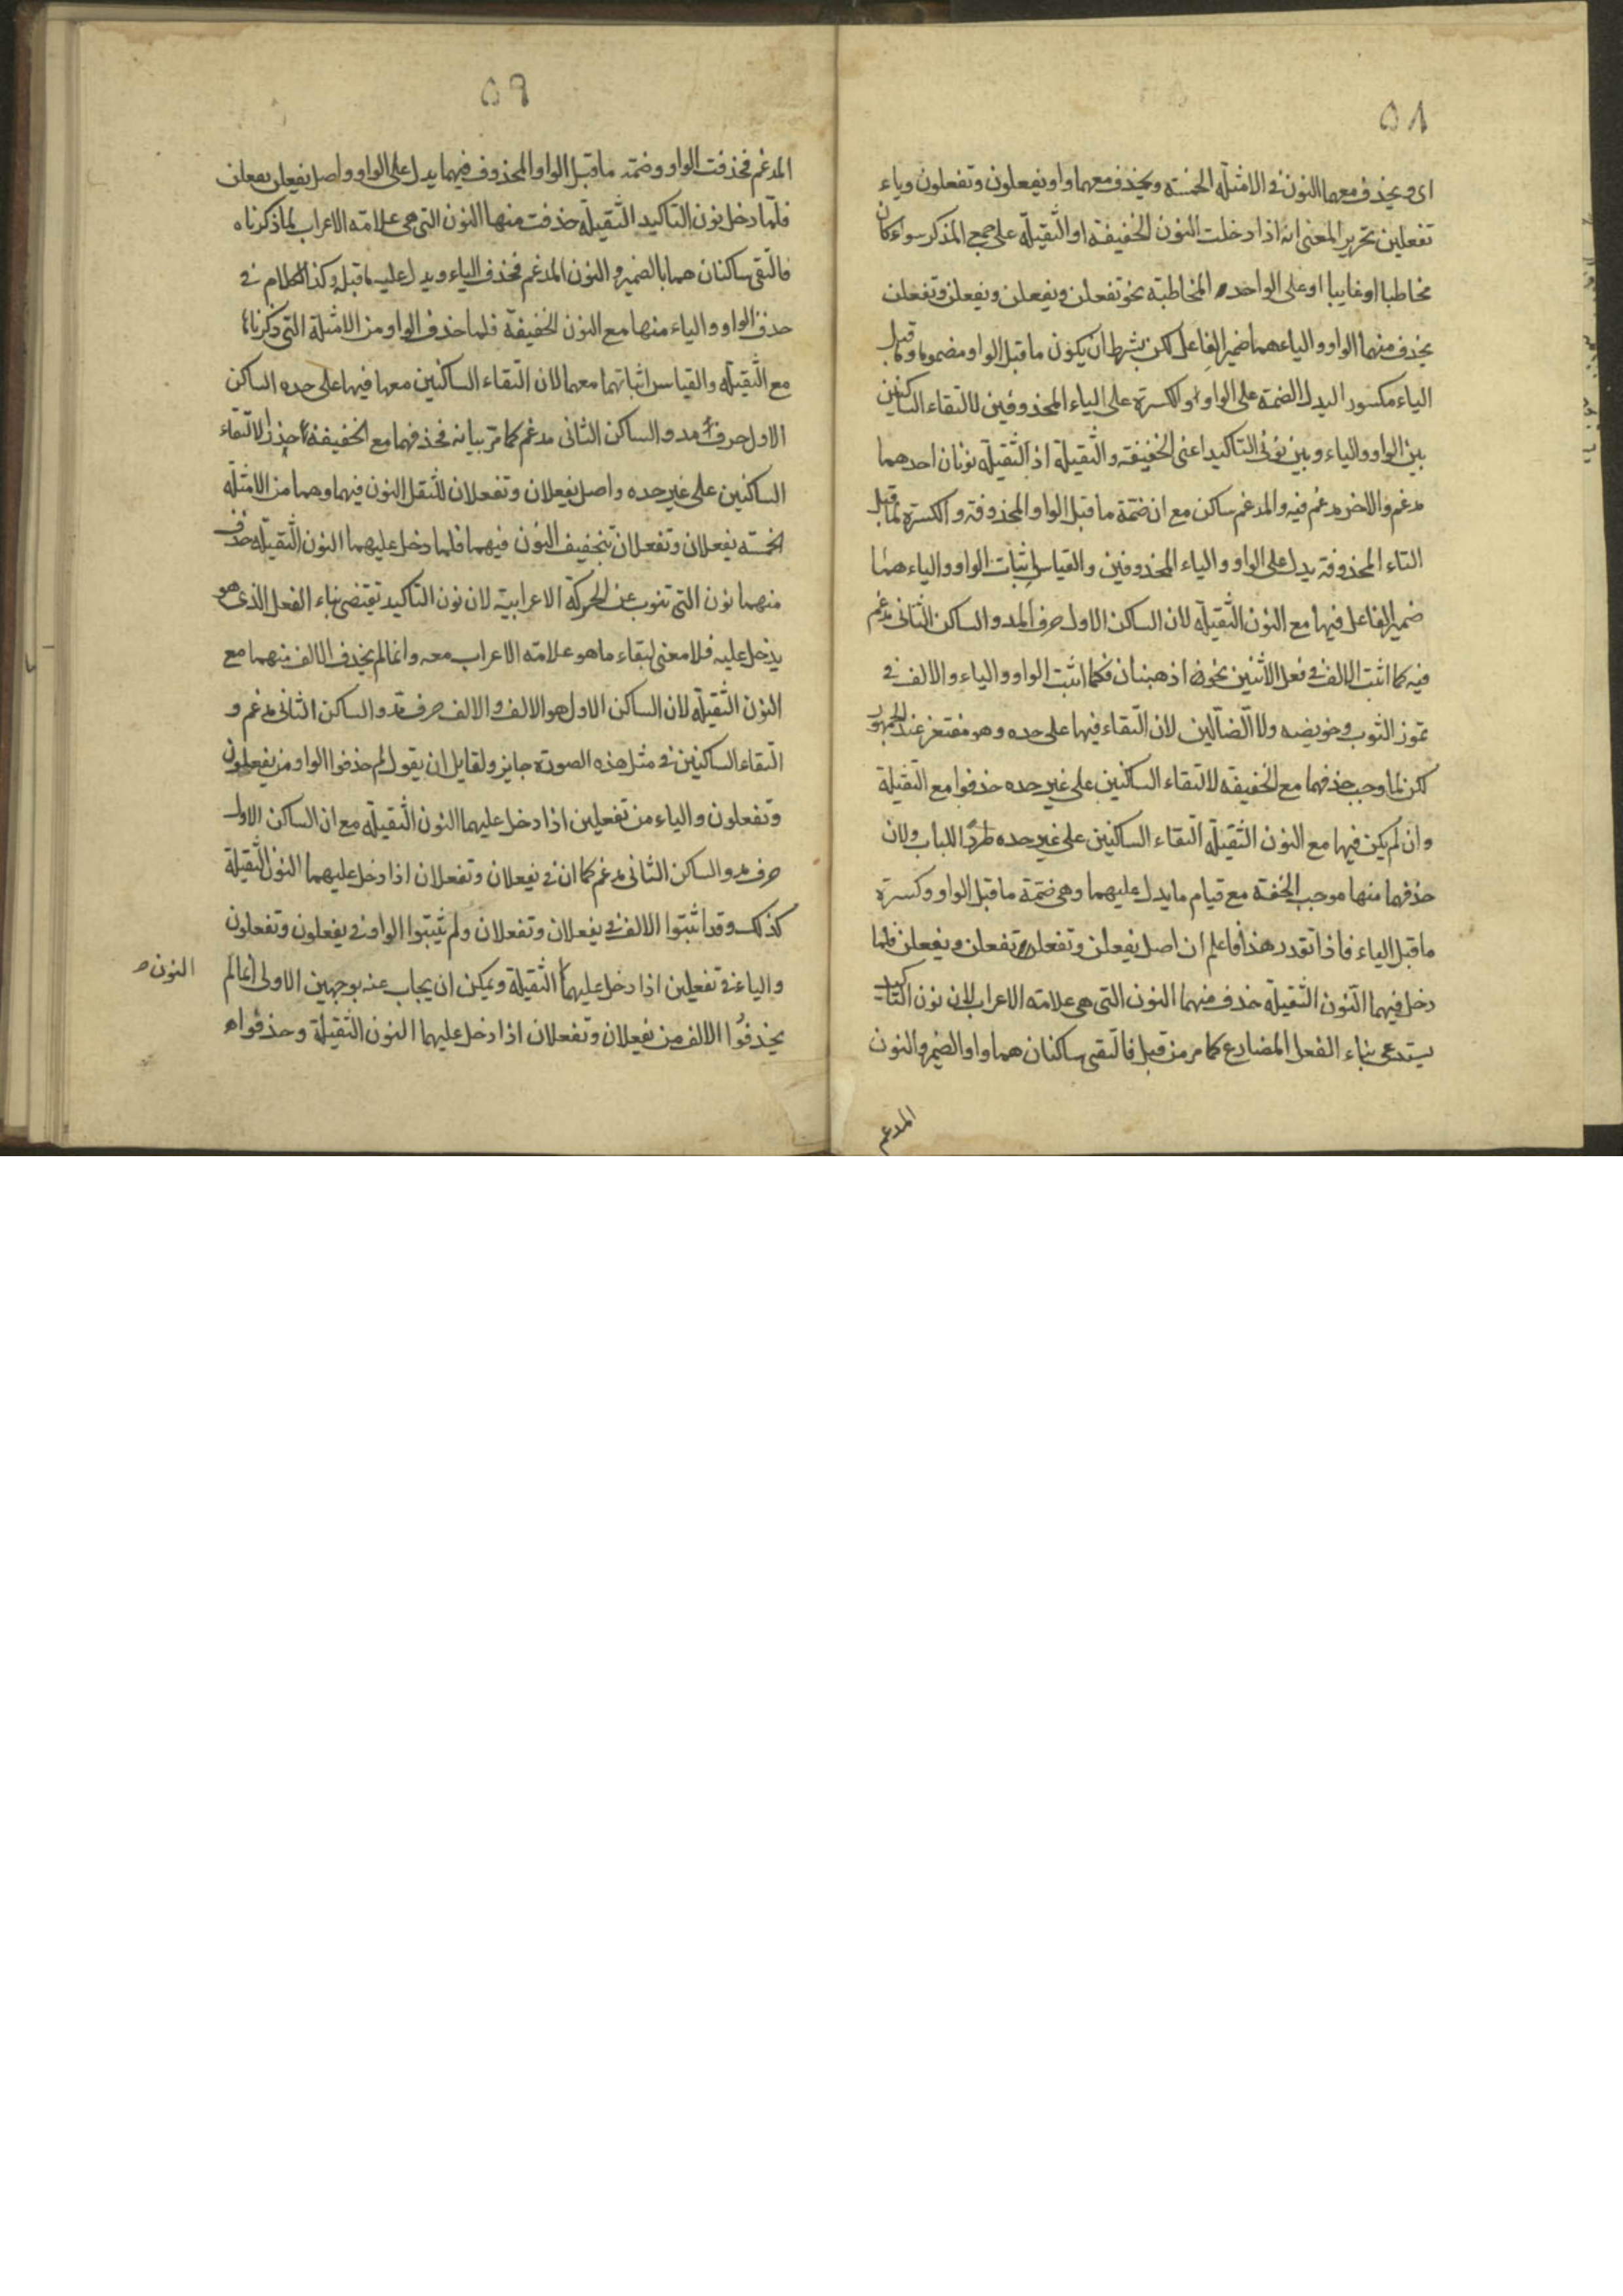 ٥٨
اى ويحذف معها النون فى الامثلة الخمسة ويحذف معهما واو يفعلون وتفعلون وياء
تفعلين تحرير المعنى انه اذا دخلت النون الخفيفة او الثقيلة على جمع المذكر سواء كان
مخاطبا او غايبا او على الواحدة المخاطبة نحو تفعلن ويفعلن ويفعلن وتفعلن
يحذف منهما الواو والياء هما ضمير الفاعل لكن بشرط ان يكون ما قبل الواو مضموما وما قبل
الياء مكسور اليدل الضمة على الواو والكسرة على الياء المحذوفين لالتقاء الساكنين
بين الواو والياء وبين نونى التاكيد اعنى الخفيفة والثقيلة اذ الثقيلة نونان احدهما
مدغم والاخر مدغم فيه والمدغم ساكن مع ان ضمة ما قبل الواو المحذوفة والكسرة لما قبل
التاء المحذوفة يدل على الواو والياء المحذوفين والقياس اثبات الواو والياء هما
ضمير الفاعل فيها مع النون الثقيلة لان الساكن الاول حرف المد والساكن الثانى مدغم
فيه كما اثبت الالف فى فعل الاثنين نحو اذهبنان فكما اثبت الواو والياء والالف فى
تموز الثوب وخويضه ولا الضالين لان التقاء فيها على حده وهو مفتقر عند الجمهور
لكن لما وجب حذفهما مع الخفيفة لالتقاء الساكنين على غير حده حذفوا مع الثقيلة
وان لم يكن فيها مع النون الثقيلة التقاء الساكنين على غير حده طردا للباب ولان
حذفهما منها موجب الخفة مع قيام ما يدل عليهما وهى ضمة ما قبل الواو وكسرة
ما قبل الياء فاذا تقدر هذا فاعلم ان اصل يفعلن وتفعلن تفعلن ويفعلن فلما
دخل فيهما النون الثقيلة حذف منهما النون التى هى علامة الاعراب لان نون التاكيد
يستدعى بناء الفعل المضارع كما مر من قبل فالتقى ساكنان هما واو الضمير والنون
المدغم
٥٩
المدغم فحذفت الواو وضمة ما قبل الواو المحذوف فيهما يدل على الواو واصل يفعلن يفعلن
فلما دخل نون التاكيد الثقيلة حذفت منها النون التى هى علامة الاعراب لما ذكرناه
فالتقى ساكنان هما با الضمير والنون المدغم فحذف الياء ويدل عليه ما قبله وكذا الكلام فى
حذف الواو والياء منها مع النون الخفيفة فلما حذف الواو من الامثلة التى ذكرناها
مع الثقيلة والقياس اثباتهما معهما لان التقاء الساكنين معها فيها على حده الساكن
الاول حرف مد والساكن الثانى مدغم كما مر بيانه فحذفهما مع الخفيفة اجدر لالتقاء
الساكنين على غير حده واصل يفعلان وتفعلان للثقل النون فيهما وهما من الامثلة
الخمسة يفعلان وتفعلان بتخفيف النون فيهما فلما دخل عليهما النون الثقيلة حذف
منهما نون التى تنوب عن الحركة الاعرابية لان نون التاكيد تقتضى بناء الفعل الذى هو
يدخل عليه فلا معنى لبقاء ما هو علامة الاعراب معه وانما لم يحذف الالف منهما مع
النون الثقيلة لان الساكن الاول هو الالف والالف حرف مد والساكن الثانى مدغم و
التقاء الساكنين فى مثل هذه الصورة جايز ولقايل ان يقول لم حذفوا الواو من يفعلون
وتفعلون والياء من تفعلين اذا دخل عليهما النون الثقيلة مع ان الساكن الاول
حرف مد والساكن الثانى مدغم كما ان فى يفعلان وتفعلان اذا دخل عليهما النون الثقيلة
كذلك وقد اثبتوا الالف فى يفعلان وتفعلان ولم يثبتوا الواو فى يفعلون وتفعلون
والياء فى تفعلين اذا دخل عليهما الثقيلة ويمكن ان يجاب عنه بوجهين الاولى انما لم
النون
يحذفوا الالف من يفعلان وتفعلان اذا دخل عليهما النون الثقيلة وحذفوا